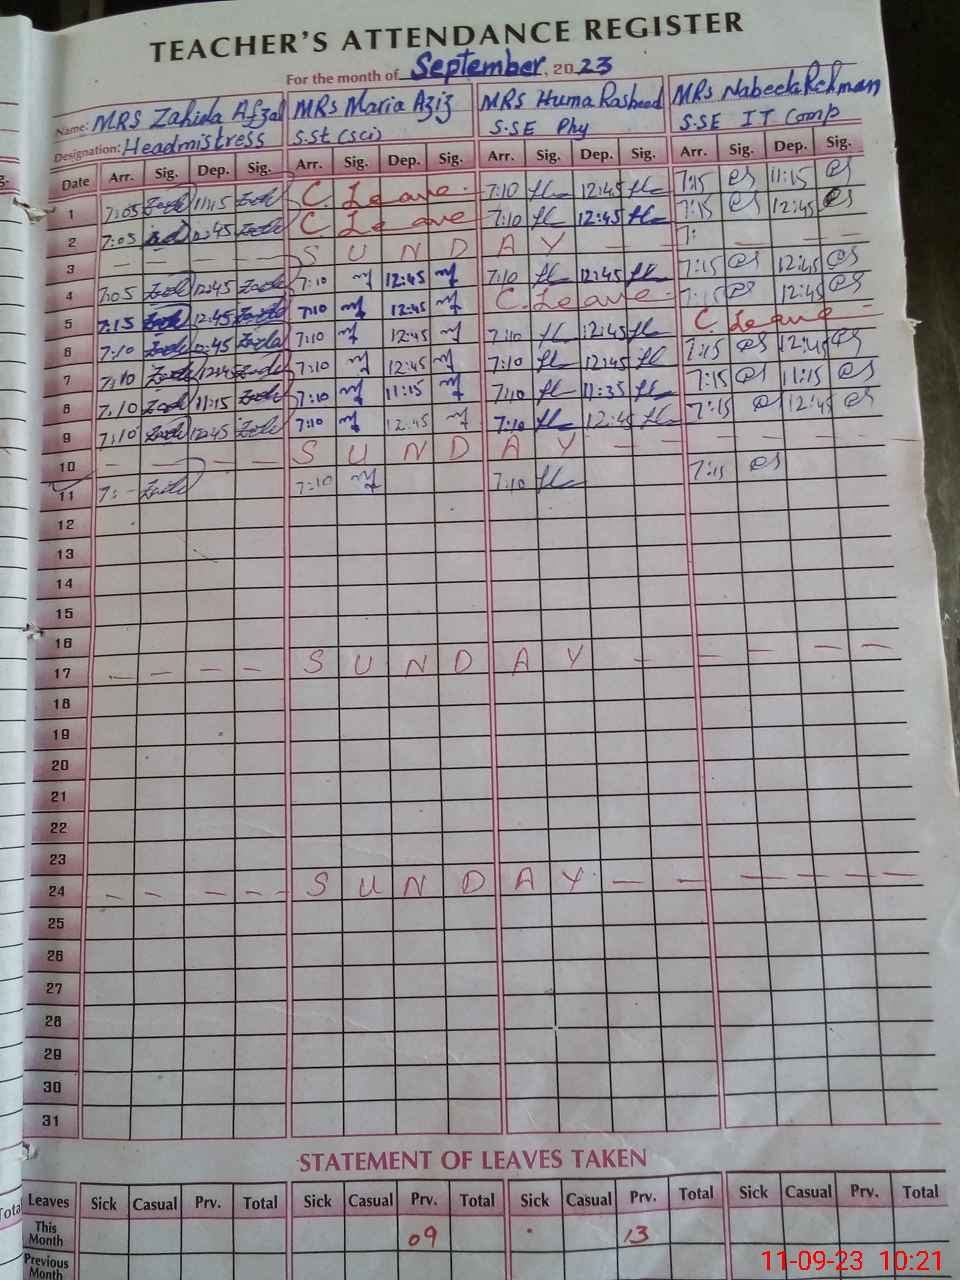 TEACHER'S ATTENDANCE REGISTER
For the month of September, 2023
Name: MRS Zahida Afzal MRS Maria Aziz MRS Huma Rasheed MRS Nabeela Rehman
Designation: Headmistress S.St (sci) S.SE Phy S.SE IT Comp
Date Arr. Sig. Dep. Sig. Arr. Sig. Dep. Sig. Arr. Sig. Dep. Sig. Arr. Sig. Dep. Sig.
1 7:05 11:15 C. Leave. 7:10 12:45 7:15 11:15
2 7:05 12:45 C Leave 7:10 12:45 7:15 12:45
3 — — — — S U N D A Y — — — — —
4 7:05 12:45 7:10 12:45 7:10 12:45 7:15 12:45
5 7:15 12:45 7:10 12:45 C. Leave. 7:15 12:45
6 7:10 12:45 7:10 12:45 7:10 12:45 C. Leave
7 7:10 12:45 7:10 12:45 7:10 12:45 7:15 12:45
8 7:10 11:15 7:10 11:15 7:10 11:35 7:15 11:15
9 7:10 12:45 7:10 12:45 7:10 12:45 7:15 12:45
10 — — — S U N D A Y — — — — — —
11 7:10 7:10 7:15
12
13
14
15
16
17 — — — — S U N D A Y — — — — —
18
19
20
21
22
23
24 — — — — S U N D A Y — — — — — —
25
26
27
28
29
30
31
STATEMENT OF LEAVES TAKEN
Leaves Sick Casual Prv. Total Sick Casual Prv. Total Sick Casual Prv. Total Sick Casual Prv. Total
This Month 09 13
Previous Month
11-09-23 10:21